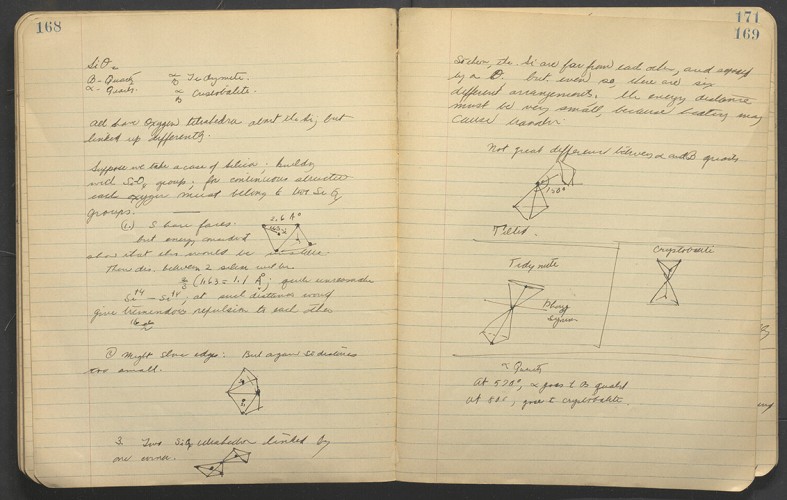 168
SiO2
B - Quartz α Tridymite.
α - Quartz. B
α Cristobalite.
B
all have Oxygen tetrahedra about the Si, but
linked up differently.
Suppose we take a case of silica; building
with SiO4 groups; for continuous structure
each oxygen must belong to two Si O4
groups.
(1.) Share faces. 2.6 A°
but energy
show that this would be
Then dis. between 2 silicon will be
2/3 (1.63 = 1.1 Å; quite unreasonable
Si+4 — Si+4, at such distance would
give tremendous repulsion to each other
② Might share edges: But again Si distances
too small.
3. Two SiO4 tetrahedra linked by
one corner.
171
169
So here, the Si are far from each other, and separated
by a O. but even so, there are six
different arrangements. The energy distance
must be very small, because heating may
cause transfer.
Not great difference between α and B quartz
150°
Tilted.
Tidymite
Plane
of
Symm.
Crystobalite
α Quartz
At 570°, α goes to B quartz
at , goes to crystobalite.